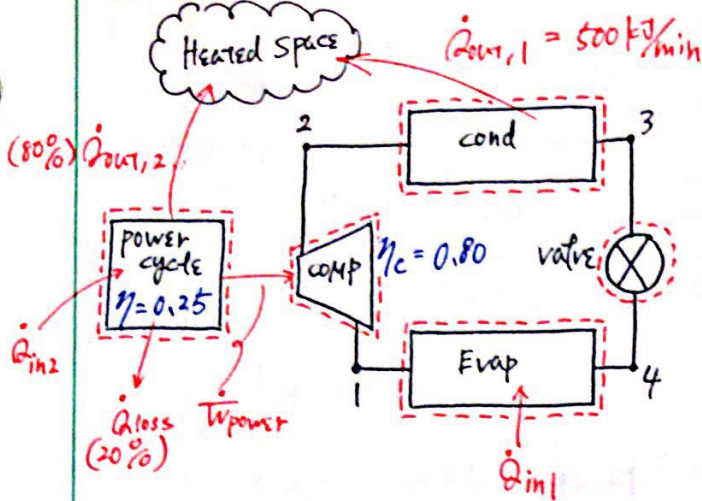 Heated Space
Q̇out,1 = 500 kJ/min
(80%) Q̇out,2
2
cond
3
power
cycle
η=0.25
comp
ηc = 0.80
valve
Q̇in2
Q̇loss
(20%)
Ẇpower
1
Evap
4
Q̇in1